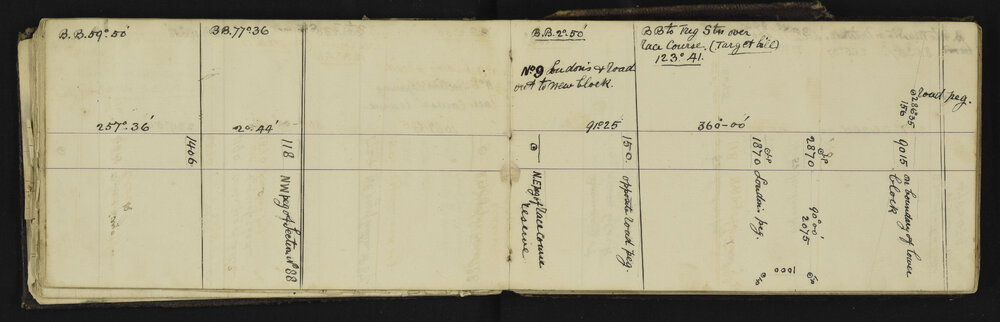 B.B. 59° 50'
257° 36'
1406
B B. 77° 36
20° 44'
118 NW peg of Section N° 88
B.B. 2° 50'
N° 9 Loudon's & Road
out to new block.
91° 25
N.E peg of Race Course
reserve
150 opposite road peg.
B B to Trig Stn over
Race Course. (Target hill)
123° 41.
360° - 00'
1870 Loudon's peg.
1000
2870
90° 00'
2075
Road peg.
28635
150
9015 on boundary of lower
block